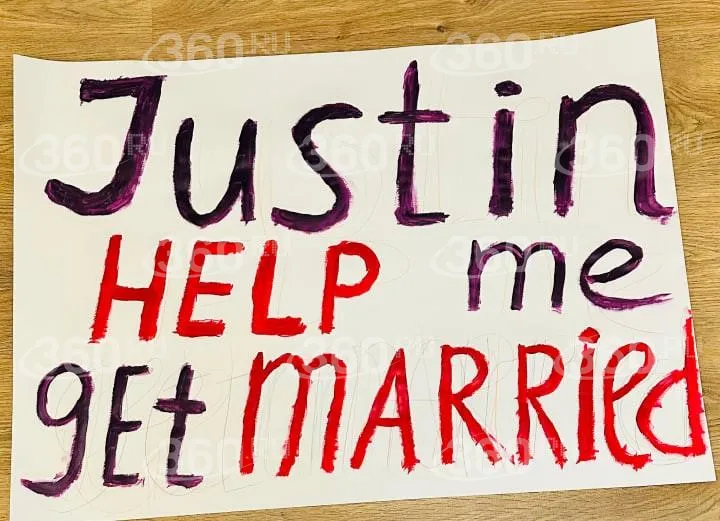 Justin
HELP me
gEt mARRiEd
360.RU